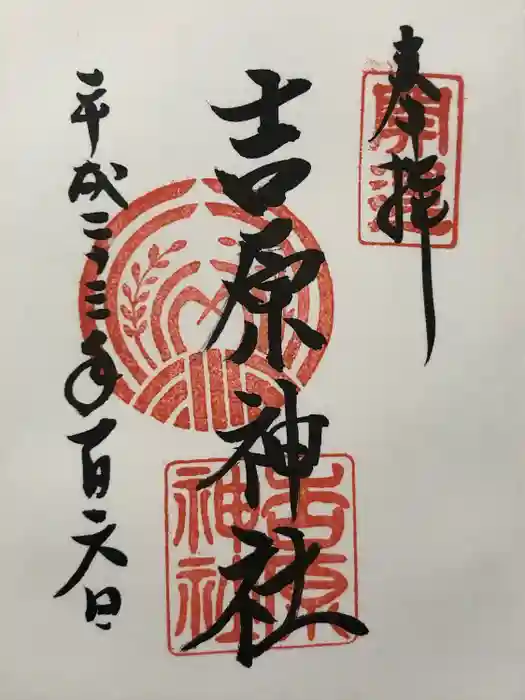 奉拝
開運
吉原神社
吉原神社
平成二十三年一月六日